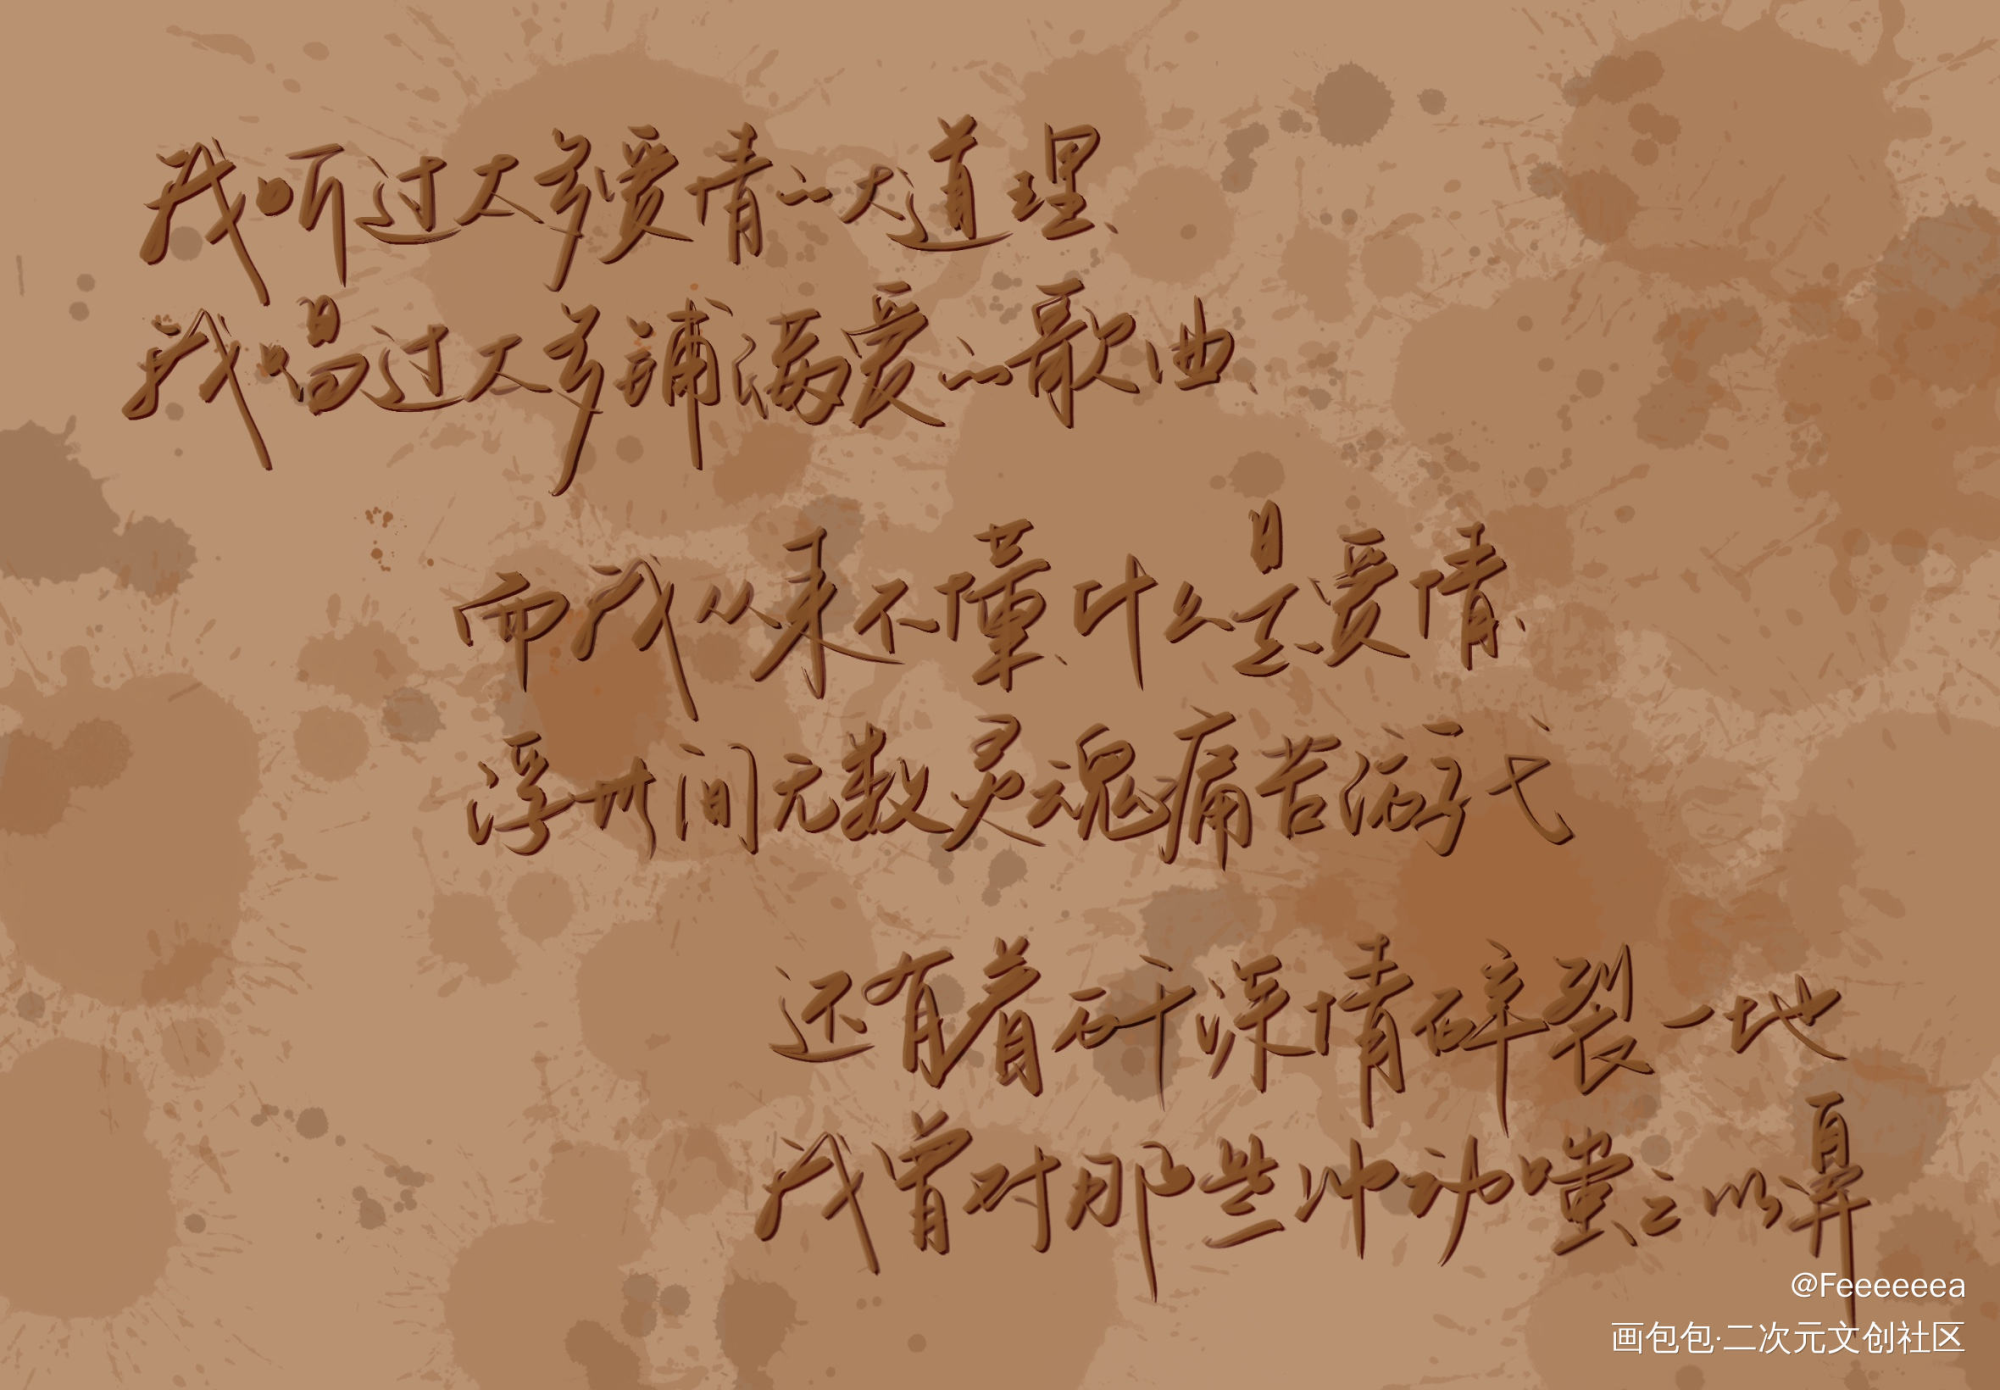 我听过太多爱情的大道理
我唱过太多铺满爱的歌曲
而我从来不懂什么是爱情
浮世间无数灵魂痛苦游弋
还有着不干深情碎裂一地
我曾对那些冲动嗤之以鼻
@Feeeeeeea
画包包·二次元文创社区